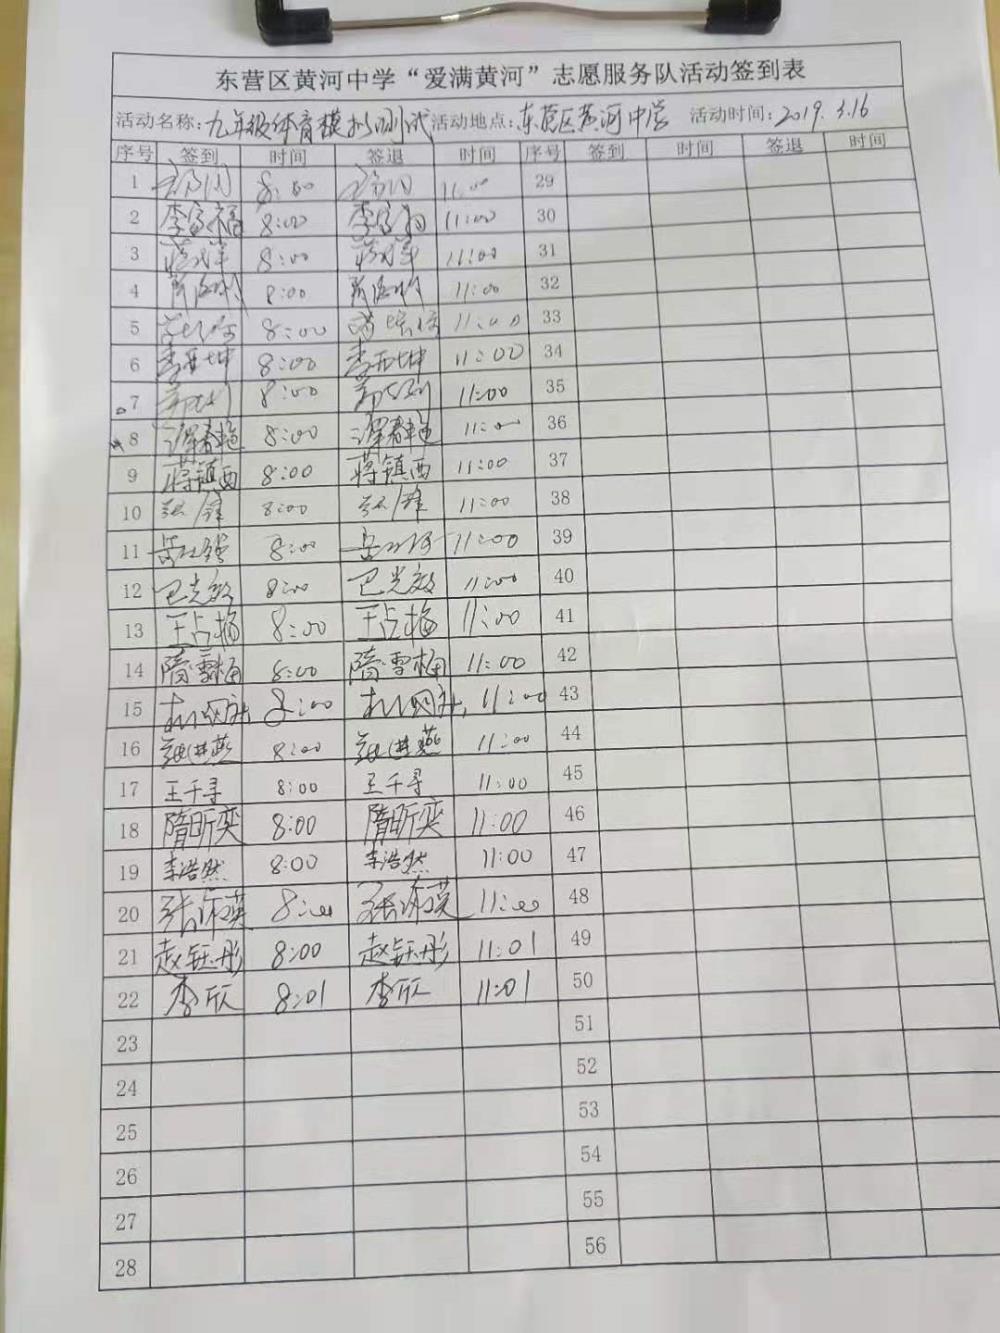 东营区黄河中学“爱满黄河”志愿服务队活动签到表
活动名称:九年级体育模拟测试 活动地点:东营区黄河中学 活动时间:2019.3.16
序号 签到 时间 签退 时间 序号 签到 时间 签退 时间
1 8:00 11:00 29
2 李富福 8:00 11:00 30
3 8:00 11:00 31
4 8:00 11:00 32
5 8:00 11:00 33
6 李亚坤 8:00 李亚坤 11:00 34
7 8:00 11:00 35
8 谭春艳 8:00 谭春艳 11:00 36
9 蒋镇西 8:00 蒋镇西 11:00 37
10 8:00 11:00 38
11 8:00 11:00 39
12 巴光敏 8:00 巴光敏 11:00 40
13 王占梅 8:00 王占梅 11:00 41
14 隋雪梅 8:00 隋雪梅 11:00 42
15 8:00 11:00 43
16 8:00 11:00 44
17 王千寻 8:00 王千寻 11:00 45
18 隋昕奕 8:00 隋昕奕 11:00 46
19 李浩然 8:00 李浩然 11:00 47
20 8:00 11:00 48
21 赵钰彤 8:00 赵钰彤 11:01 49
22 李欣 8:01 李欣 11:01 50
23 51
24 52
25 53
26 54
27 55
28 56